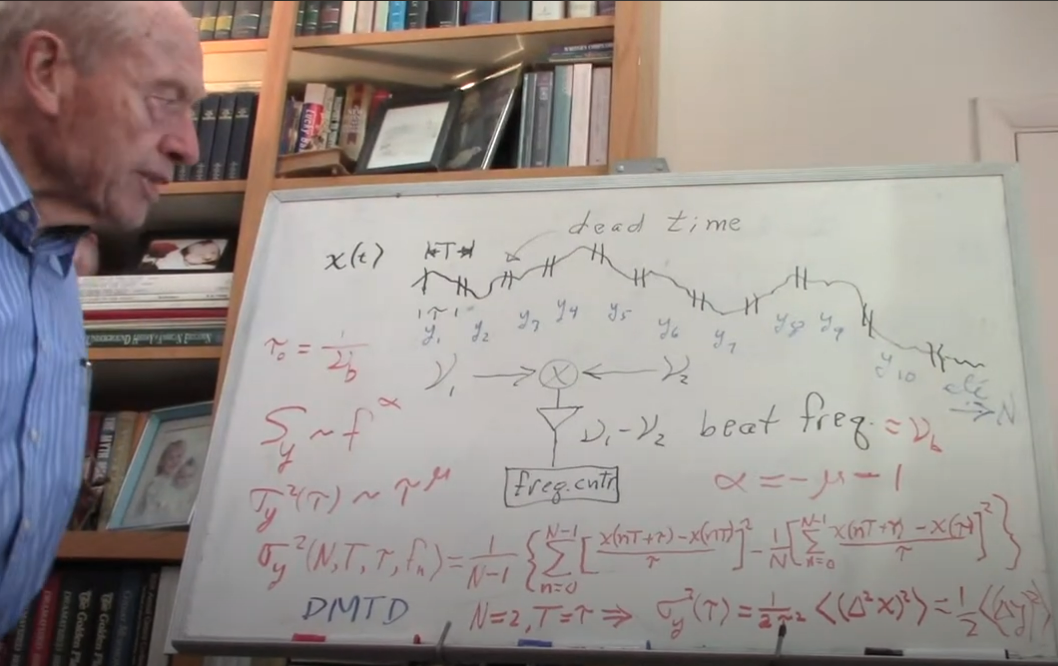 dead time
x(t) |←T→|
|τ|
y₁ y₂ y₃ y₄ y₅ y₆ y₇ y₈ y₉ y₁₀ → N
τ₀ = 1/ν_b
ν₁ → ⊗ ← ν₂
S_y ~ f^α
ν₁-ν₂ beat freq. = ν_b
freq.cntr
σ_y²(τ) ~ τ^μ
α = -μ - 1
σ_y²(N,T,τ,f_h) = 1/(N-1) { Σ_{n=0}^{N-1} [ (x(nT+τ)-x(nT))/τ ]² - 1/N [ Σ_{n=0}^{N-1} (x(nT+τ)-x(nT))/τ ]² }
DMTD N=2, T=τ ⇒ σ_y²(τ) = 1/(2τ²) ⟨(Δ²x)²⟩ = 1/2 ⟨(Δy)²⟩